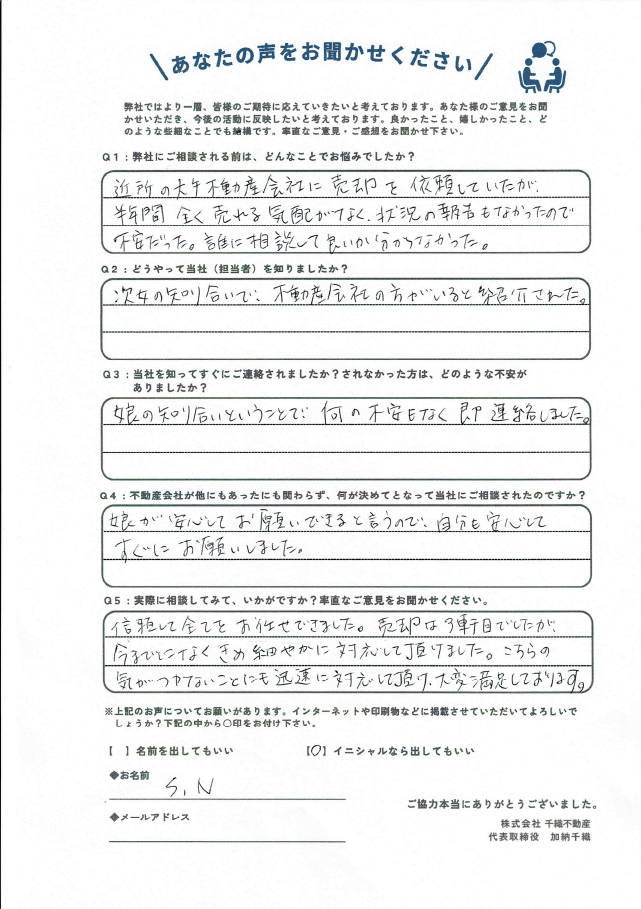 あなたの声をお聞かせください
弊社ではより一層、皆様のご期待に応えていきたいと考えております。あなた様のご意見をお聞
かせいただき、今後の活動に反映したいと考えております。良かったこと、嬉しかったこと、ど
のような些細なことでも結構です。率直なご意見・ご感想をお聞かせ下さい。
Q1：弊社にご相談される前は、どんなことでお悩みでしたか？
近所の大手不動産会社に売却を依頼していたが、
半年間全く売れる気配がなく、状況の報告もなかったので
不安だった。誰に相談して良いか分からなかった。
Q2：どうやって当社（担当者）を知りましたか？
次女の知り合いで、不動産会社の方がいると紹介された。
Q3：当社を知ってすぐにご連絡されましたか？されなかった方は、どのような不安が
ありましたか？
娘の知り合いということで、何の不安もなく即連絡しました。
Q4：不動産会社が他にもあったにも関わらず、何が決めてとなって当社にご相談されたのですか？
娘が安心してお願いできると言うので、自分も安心して
すぐにお願いしました。
Q5：実際に相談してみて、いかがですか？率直なご意見をお聞かせください。
信頼して全てをお任せできました。売却は3軒目でしたが、
今までになくきめ細やかに対応して頂けました。こちらの
気がつかないことにも迅速に対応して頂け、大変満足しております。
※上記のお声についてお願いがあります。インターネットや印刷物などに掲載させていただいてよろしいで
しょうか？下記の中から○印をお付け下さい。
【 】名前を出してもいい 【○】イニシャルなら出してもいい
◆お名前
S.N
ご協力本当にありがとうございました。
◆メールアドレス
株式会社 千織不動産
代表取締役 加納千織